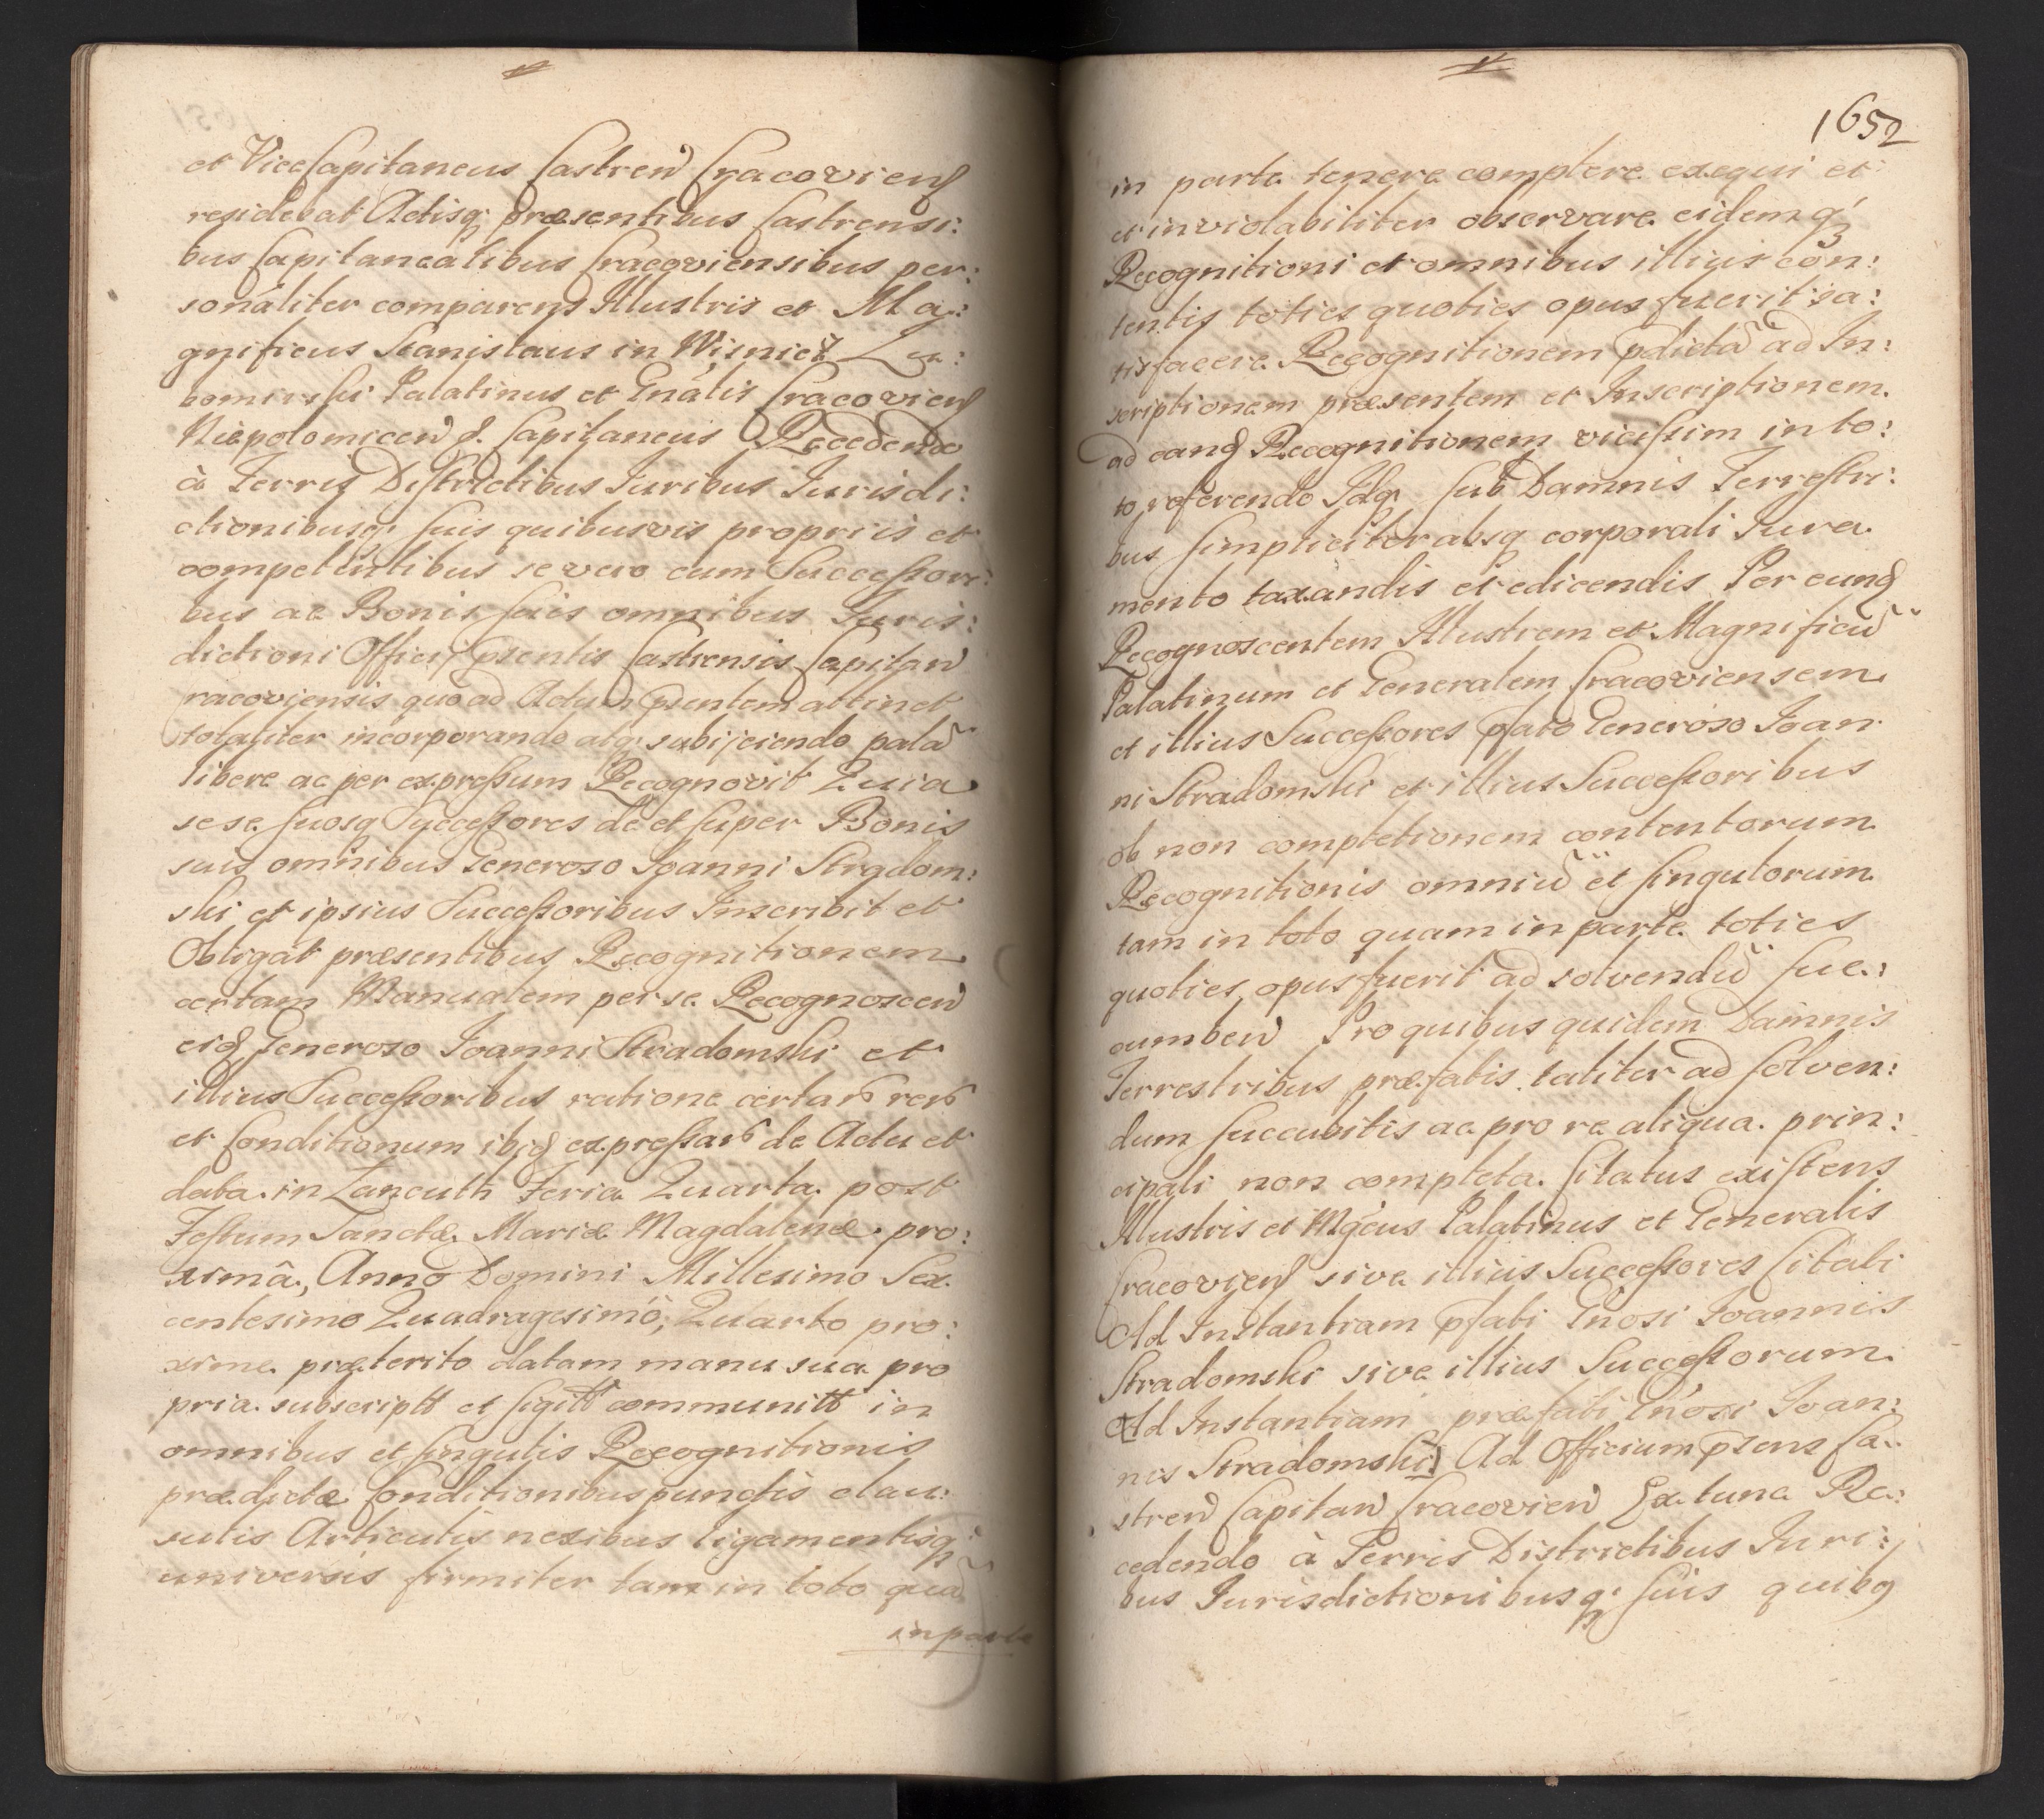 et Vice Capitaneus Castren Cracovien
residebat Actisq praesentibus Castrensi:
bus Capitanealibus Cracoviensibus per:
sonaliter comparens Illustris et Ma:
gnificus Stanislaus in Wisnicz Lu:
bomirski Palatinus et Gnalis Cracovien
Niepolomicen Capitaneus Recedendo
à Terris Districtibus Iuribus Iurisdi:
ctionibusq suis quibusvis propriis et
competentibus se vero cum Successori:
bus ac Bonis suis omnibus Iuris:
dictioni Officij psentis Castrensis Capitan
racoviensis quo ad Actum psentem attinet
totaliter incorporando atq subijciendo palã
libere ac per expressum Recognovit Quia
sese suosq Successores de et super Bonis
suis omnibus Generoso Ioanni Stradom:
ski et ipsius Successoribus Inscribit et
Obligat praesentibus Recognitionem
certam Manualem per se Recognoscen
eid Generoso Ioanni Stradomski et
illius Successoribus ratione certar rer
et Conditionum ibid expressar de Actu et
data in Lancuth Feria Quarta post
Festum Sanctæ Mariæ Magdalenæ pro:
ximâ, Anno Domini Millesimo Sex
centesimo Quadragesimo, Quarto pro:
xime præterito datam manu sua pro
pria subscriptt et sigitt communitt in
omnibus et singulis Recognitionis
prædictæ Conditionibus punctis clau:
sulis Articulis nexibus ligamentisq
universis firmiter tam in toto quã
in parte
1652
in parte tenere complere exequi et
et inviolabiliter observare eidemq
Recognitioni et omnibus illius con:
tentis toties quoties opus fuerit sa:
tisfacere Recognitionem pdictã ad In:
scriptionem præsentem et Inscriptionem
ad eand Recognitionem vicissim in to:
to referendo Idq sub Damnis Terrestri:
bus simpliciter absq corporali Iura
mento taxandis et edicendis Per eund
Recognoscentem Illustrem et Magnificũ
Palatinum et Generalem Cracoviensem
et illius Successores pfato Generoso Ioan
ni Stradomski et illius Successoribus
ob non completionem contentorum
Recognitionis omniũ et singulorum
tam in toto quam in parte toties
quoties opus fuerit ad solvendũ suc:
cumben Pro quibus quidem Damnis
Terrestribus præfatis taliter ad solven:
dum succubitis ac pro re aliqua prin:
cipali non completa Citatus existens
Illustris et Mgcus Palatinus et Generalis
Cracovien sive illius Successores Citati
Ad Instantiam pfati Gnosi Ioannis
Stradomski sive illius Successorum
Ad Instantiam præfati Gnosi Ioan:
nis Stradomski) Ad Officium psens Ca:
stren Capitan Cracovien Ex tunc Re:
cedendo à Terris Districtibus Iuri:
bus Iurisdictionibusq suis quibq